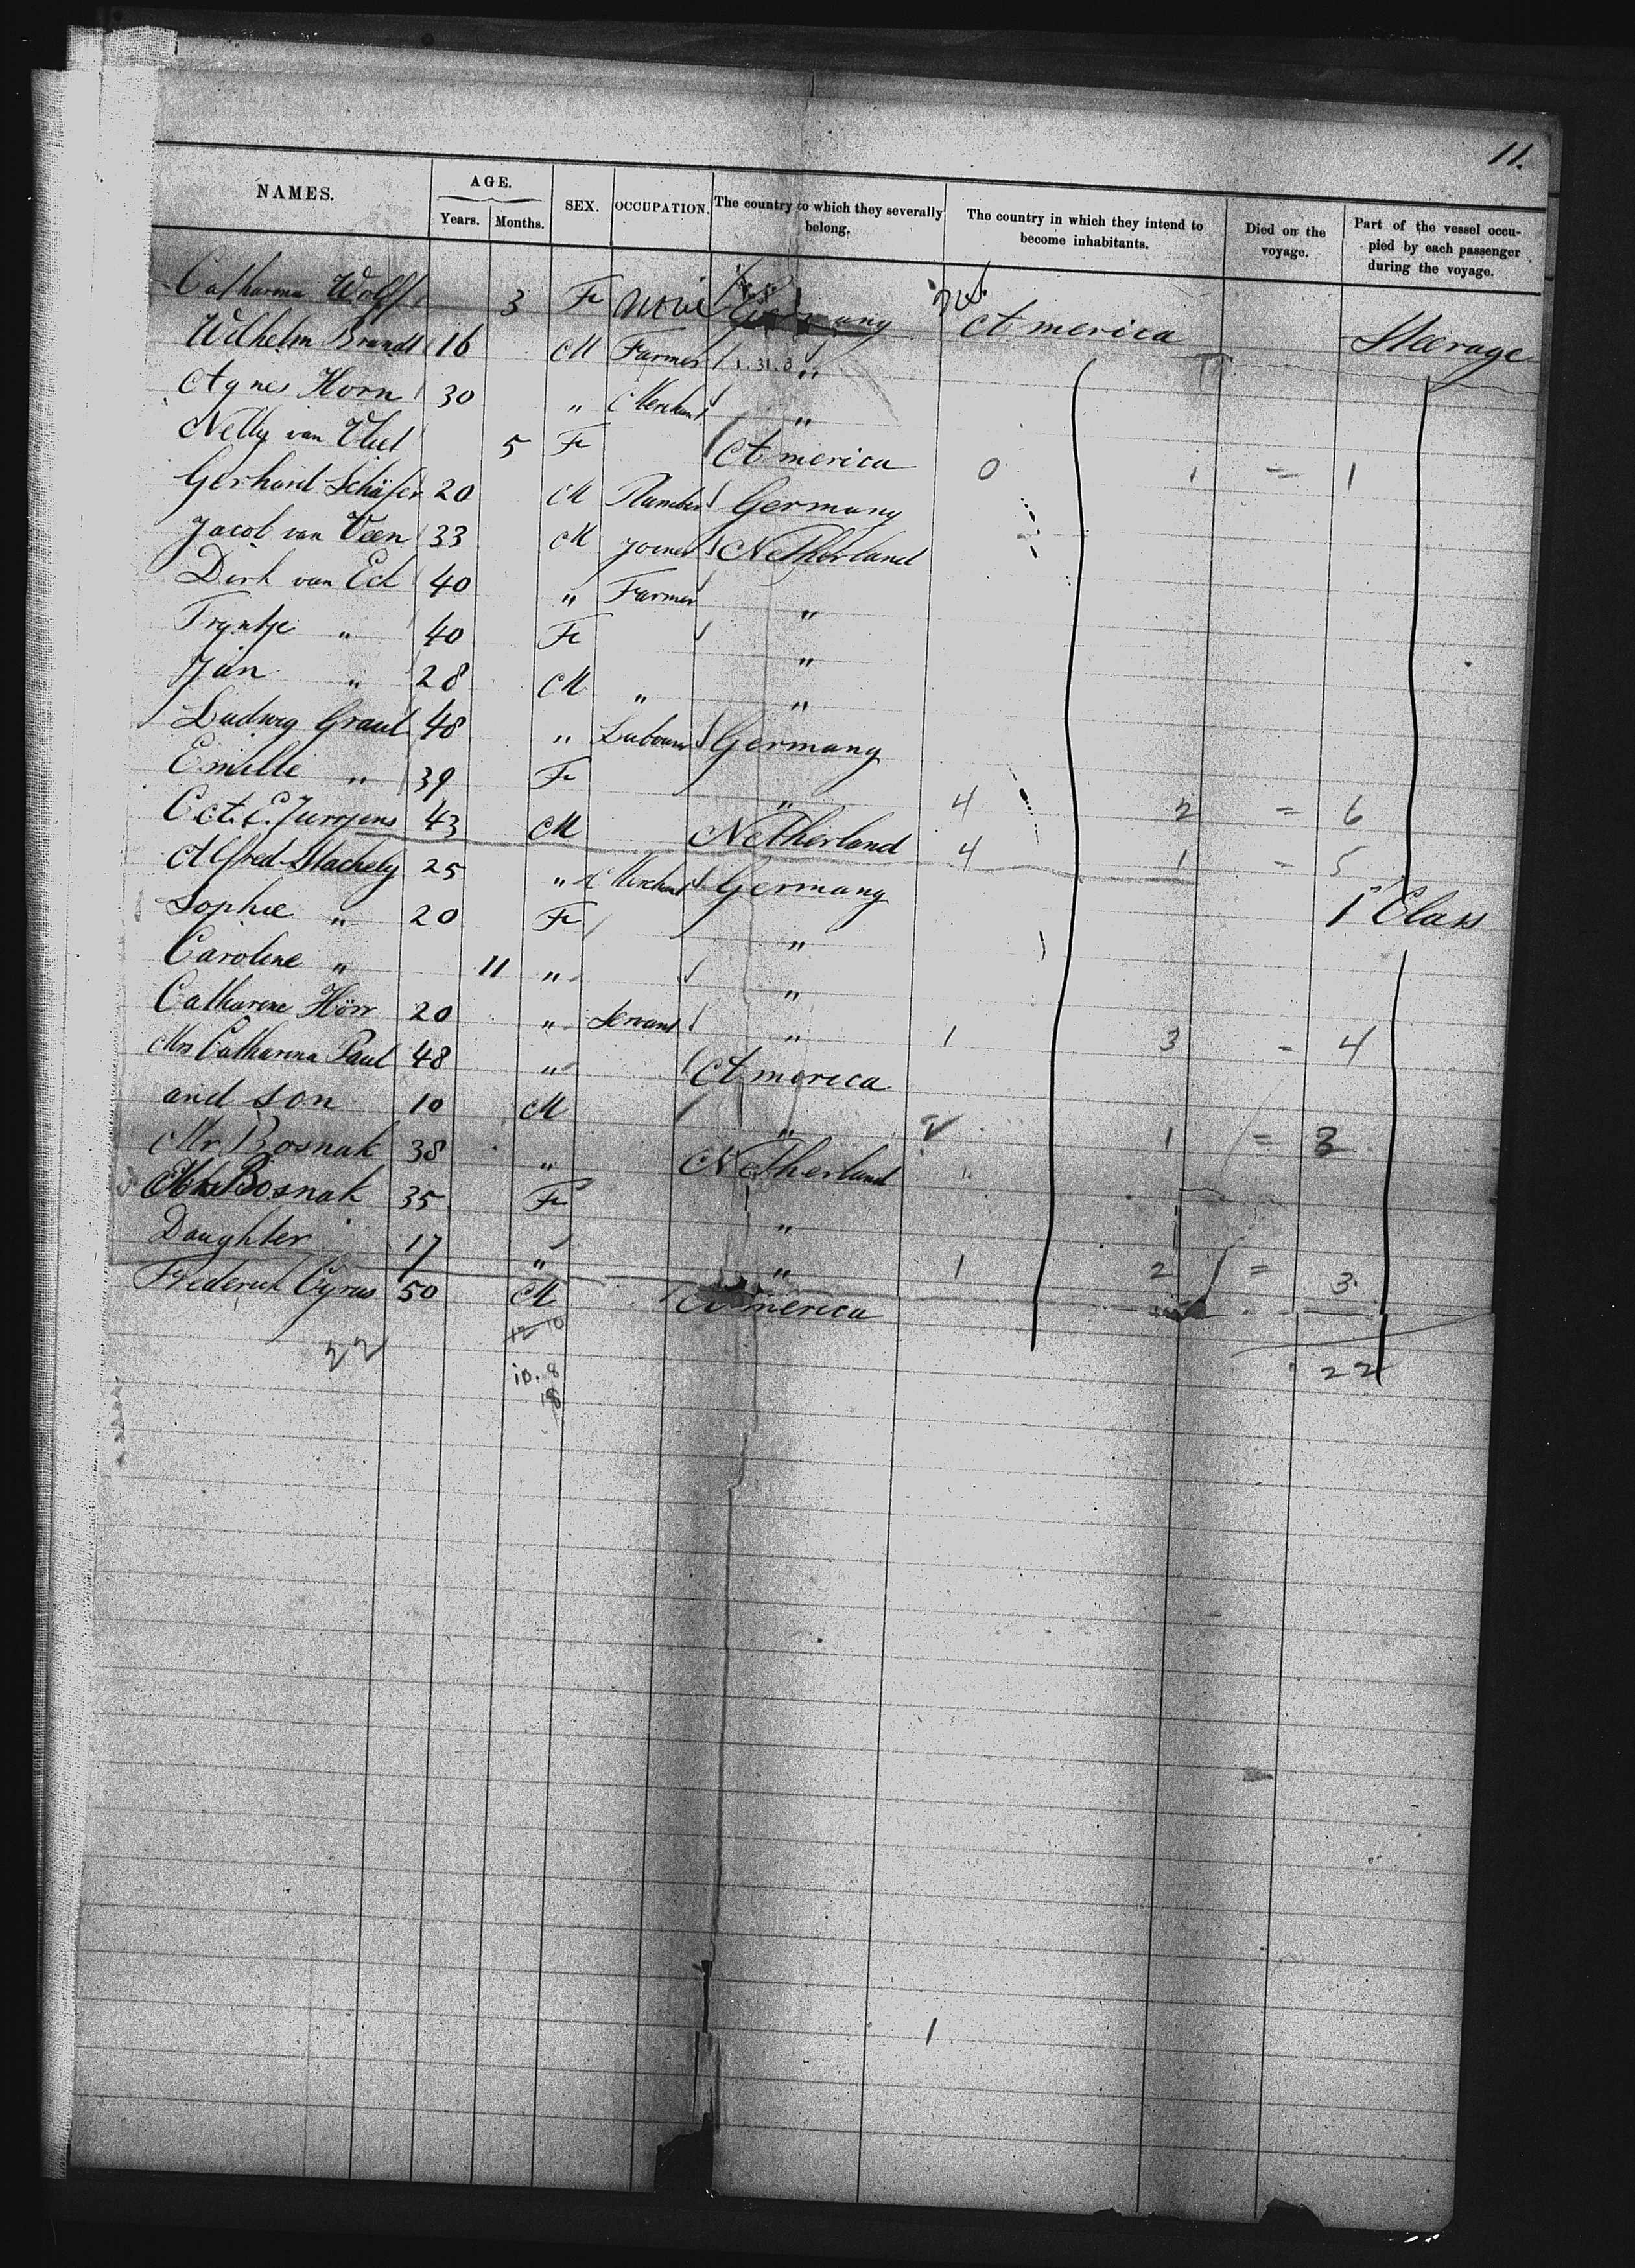 11.
NAMES. AGE. Years. Months. SEX. OCCUPATION. The country to which they severally belong. The country in which they intend to become inhabitants. Died on the voyage. Part of the vessel occupied by each passenger during the voyage.
Catharina Wolff 3 Fe None Germany America Steerage
Wilhelm Brandt 16 M Farmer "
Agnes Horn 30 " Merchant "
Nelly van Vliet 5 Fe America 0 1 = 1
Gerhard Schäfer 20 M Plumber Germany
Jacob van Veen 33 M Joiner Netherland
Dirk van Eck 40 " Farmer "
Tryntje " 40 Fe "
Jan " 28 M " "
Ludwig Graul 48 " Labourer Germany
Emilie " 39 Fe " 4 2 = 6
C. A. E. Jurrjens 43 M Netherland 4 1 = 5
Alfred Stachely 25 " Merchant Germany
Sophie " 20 Fe " 1st Class
Caroline " 11 " "
Catharine Hörr 20 " Servant " 1 3 = 4
Mrs Catharina Paul 48 " America
and son 10 M " 2 1 = 3
Mr. Bosnak 38 " Netherland
Bosnak 35 Fe "
Daughter 17 " " 1 2 = 3
Frederick Cyrus 50 M America
22 12 10 22
10. 8
18
1